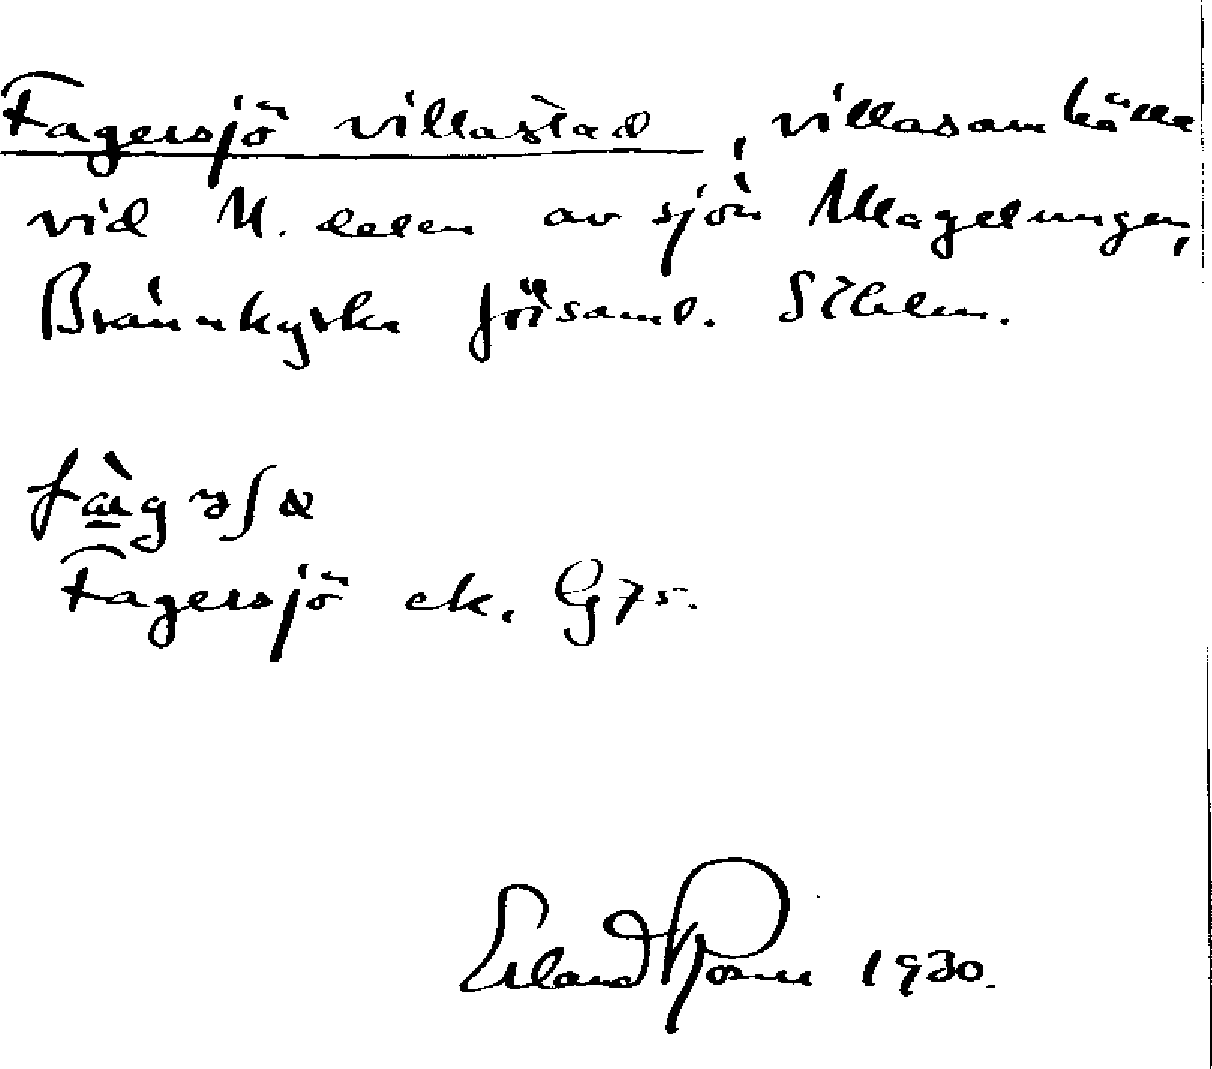 Fagersjö villastad, villasamhälle
vid N. delen av sjön Magelungen,
Brännkyrka församl. Sthlm.
Fagersjö ek. G75.
Erland Rosell 1930.